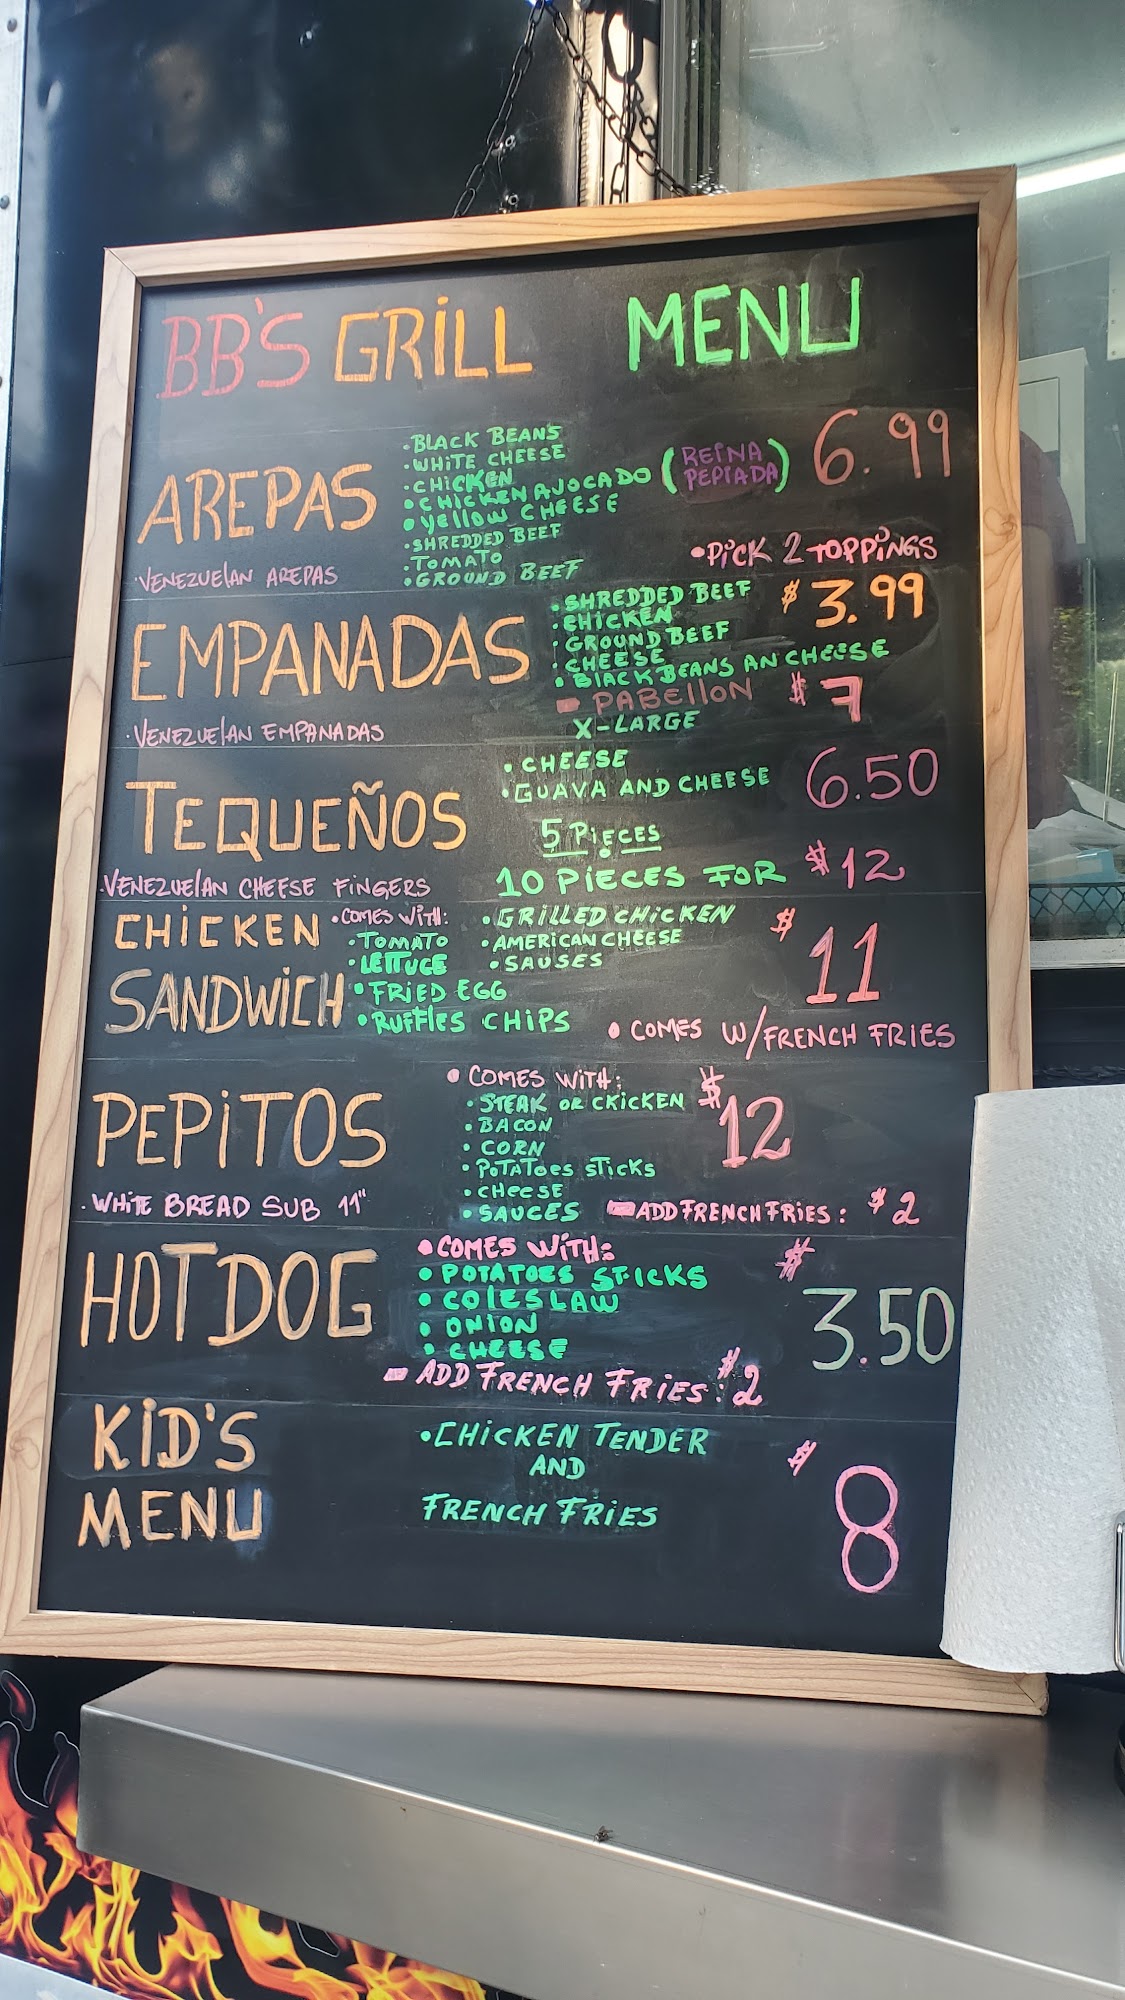 BB'S GRILL MENU
AREPAS
·VENEZUELAN AREPAS
·BLACK BEANS
·WHITE CHEESE
·CHICKEN
·CHICKEN AVOCADO (REINA PEPIADA)
·YELLOW CHEESE
·SHREDDED BEEF
·TOMATO
·GROUND BEEF
6.99
·PICK 2 TOPPINGS
EMPANADAS
·VENEZUELAN EMPANADAS
·SHREDDED BEEF
·CHICKEN
·GROUND BEEF
·CHEESE
·BLACK BEANS AN CHEESE
$3.99
PABELLON $7
X-LARGE
TEQUEÑOS
·VENEZUELAN CHEESE FINGERS
·CHEESE
·GUAVA AND CHEESE
6.50
5 PIECES
10 PIECES FOR $12
CHICKEN
SANDWICH
·COMES WITH:
·TOMATO
·LETTUCE
·FRIED EGG
·RUFFLES CHIPS
·GRILLED CHICKEN
·AMERICAN CHEESE
·SAUSES
$11
·COMES W/FRENCH FRIES
PEPITOS
·WHITE BREAD SUB 11"
·COMES WITH:
·STEAK OR CKICKEN
·BACON
·CORN
·POTATOES STICKS
·CHEESE
·SAUCES
$12
ADD FRENCH FRIES: $2
HOT DOG
·COMES WITH:
·POTATOES STICKS
·COLESLAW
·ONION
·CHEESE
$3.50
ADD FRENCH FRIES: $2
KID'S
MENU
·CHICKEN TENDER
AND
FRENCH FRIES
$8